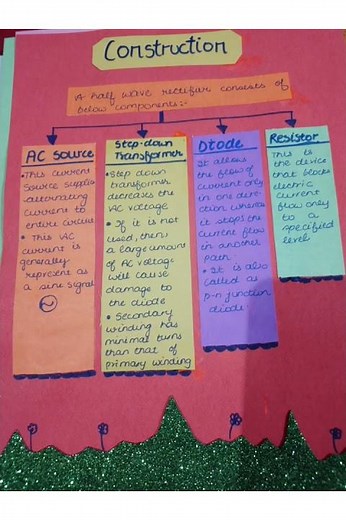 Construction
A half wave rectifier consists of
below components:-
AC Source
• This current
Source supplies
alternating
current to
entire circuit
• This AC
current is
generally
represent as
a sine signal
Step-down
Transformer
• Step down
transformer
decreases the
AC voltage
• If it is not
used, then
a large amount
of AC voltage
will cause
damage to
the diode
• Secondary
winding has
minimal turns
than that of
primary winding
Diode
It allows
the flow of
current only
in one dire-
ction whereas
it stops the
current flow
in another
path
• It is also
called as
p-n junction
diode.
Resistor
This is
the device
that blocks
electric
current
flow only
to a
specified
level